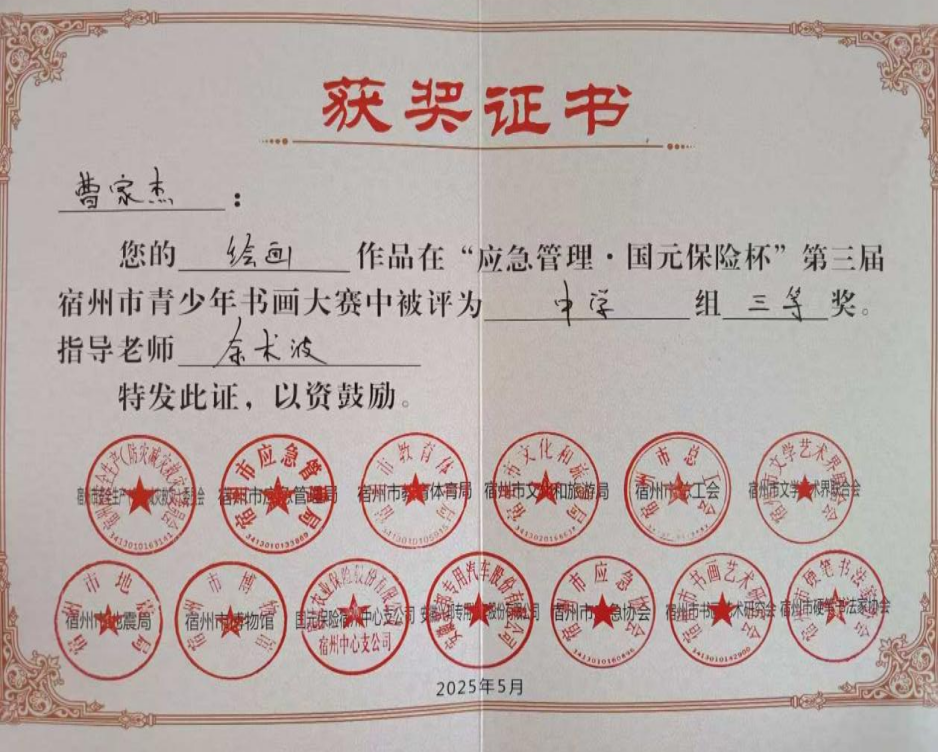 获奖证书
曹家杰：
您的 绘画 作品在“应急管理·国元保险杯”第三届
宿州市青少年书画大赛中被评为 中学 组 三等 奖。
指导老师 余术波
特发此证，以资鼓励。
宿州市应急管理局 宿州市教育体育局 宿州市文化和旅游局 宿州市总工会 宿州市文学艺术界联合会
宿州市地震局 宿州市博物馆 国元保险宿州中心支公司 宿州市应急协会 宿州市书画艺术研究会 宿州市硬笔书法家协会
2025年5月